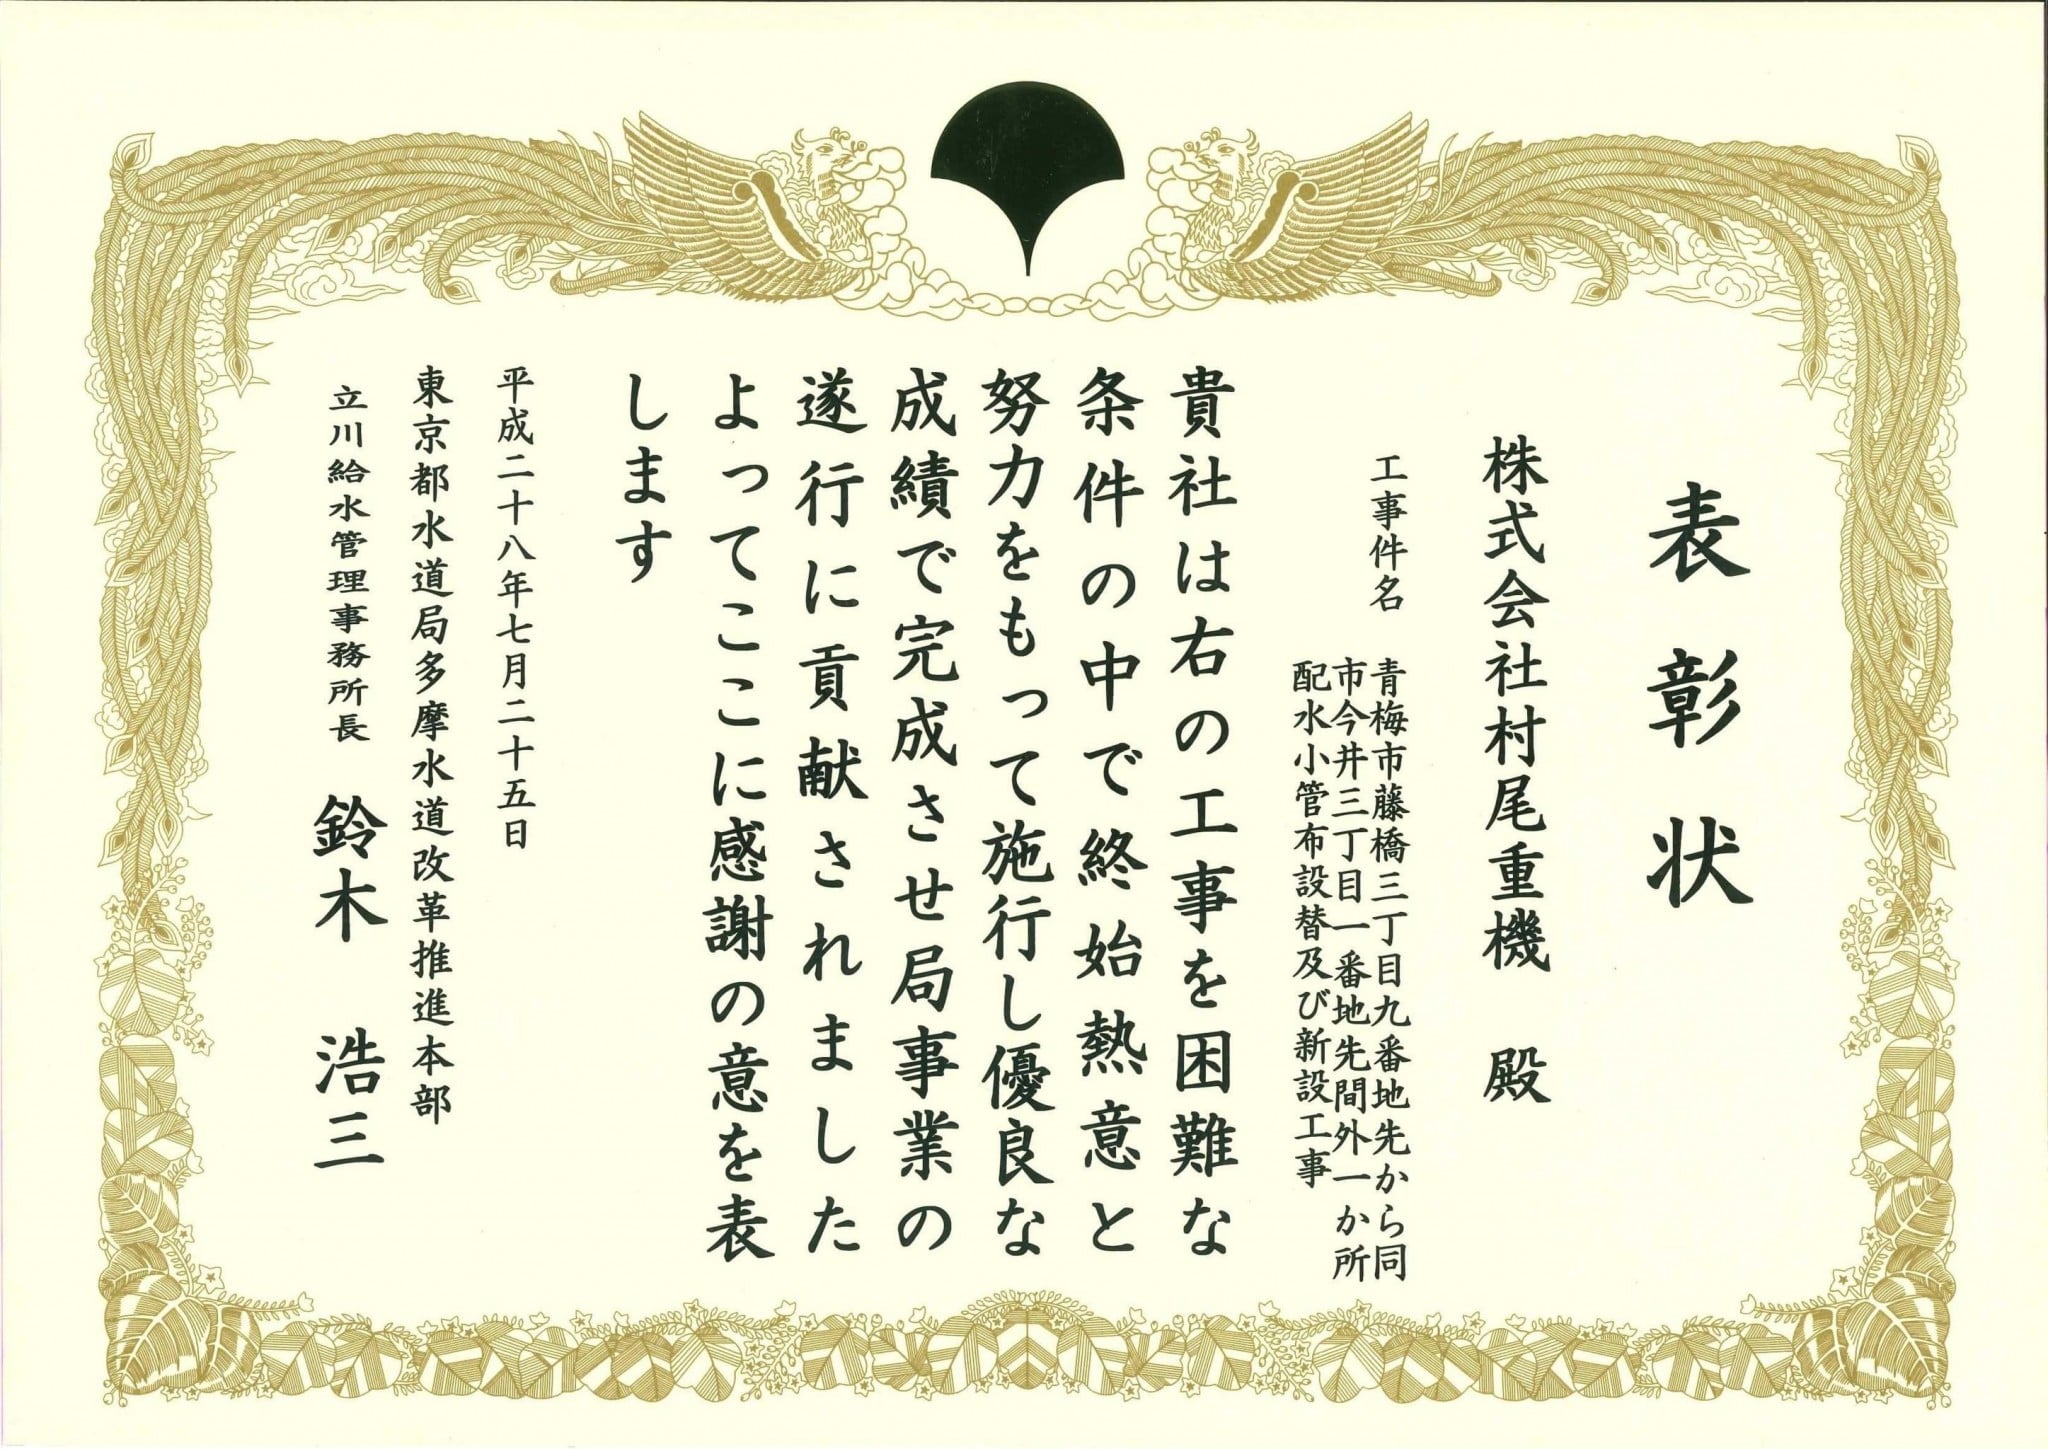 表彰状
株式会社村尾重機 殿
工事件名 青梅市藤橋三丁目九番地先から同
市今井三丁目一番地先間外一か所
配水小管布設替及び新設工事
貴社は右の工事を困難な
条件の中で終始熱意と
努力をもって施行し優良な
成績で完成させ局事業の
遂行に貢献されました
よってここに感謝の意を表
します
平成二十八年七月二十五日
東京都水道局多摩水道改革推進本部
立川給水管理事務所長 鈴木 浩三